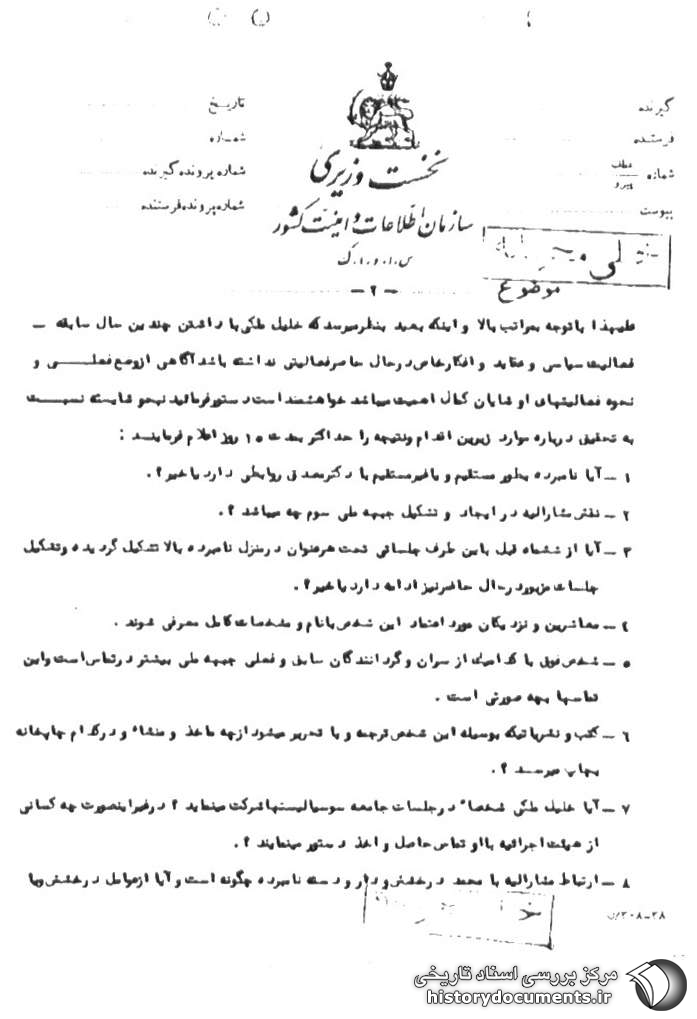 گیرنده
فرستنده
شماره عطف پیرو
پیوست
نخست وزیری
سازمان اطلاعات و امنیت کشور
س.ا.و.ا.ک
تاریخ
شماره
شماره پرونده گیرنده
شماره پرونده فرستنده
خیلی محرمانه
موضوع
-۲-
علیهذا با توجه بمراتب بالا و اینکه بعید بنظر میرسد که خلیل ملکی با داشتن چندین سال سابقه –
فعالیت سیاسی و عقاید و افکار خاص در حال حاضر فعالیتی نداشته باشد آگاهی از وضع فعلی و
نحوه فعالیتهای او شایان کمال اهمیت میباشد خواهشمند است دستور فرمائید نبحو شایسته نسبت
به تحقیق درباره موارد زیرین اقدام و نتیجه را حداکثر بمدت ۱۵ روز اعلام فرمایند :
۱ – آیا نامبرده بطور مستقیم و یا غیر مستقیم با دکتر مصدق روابطی دارد یا خیر ؟ .
۲ – نقش مشارالیه در ایجاد و تشکیل جبهه ملی سوم چه میباشد ؟ .
۳ – آیا از ششماه قبل باین طرف جلساتی تحت هر عنوان در منزل نامبرده بالا تشکیل گردیده و تشکیل
جلسات مزبور در حال حاضر نیز ادامه دارد یا خیر ؟ .
٤ – معاشرین و نزدیکان مورد اعتماد این شخص با نام و مشخصات کامل معرفی شوند .
۵ – شخص فوق با کدامیک از سران و گردانندگان سابق و فعلی جبهه ملی بیشتر در تماس است و این
تماسها بچه صورتی است .
٦ – کتب و نشریاتیکه بوسیله این شخص ترجمه و یا تحریر میشود از چه ماخذ و منشاء و در کدام چاپخانه
بچاپ میرسد ؟ .
۷ – آیا خلیل ملکی شخصاً در جلسات جامعه سوسیالیستها شرکت مینماید ؟ در غیر اینصورت چه کسانی
از هیئت اجرائیه با او تماس حاصل و اخذ دستور مینمایند ؟ .
۸ – ارتباط مشارالیه با محمد درخشش و دار و دسته نامبرده چگونه است و آیا از عوامل درخشش و یا
۲۸-۳۰۸/ن
مرکز بررسی اسناد تاریخی
historydocuments.ir